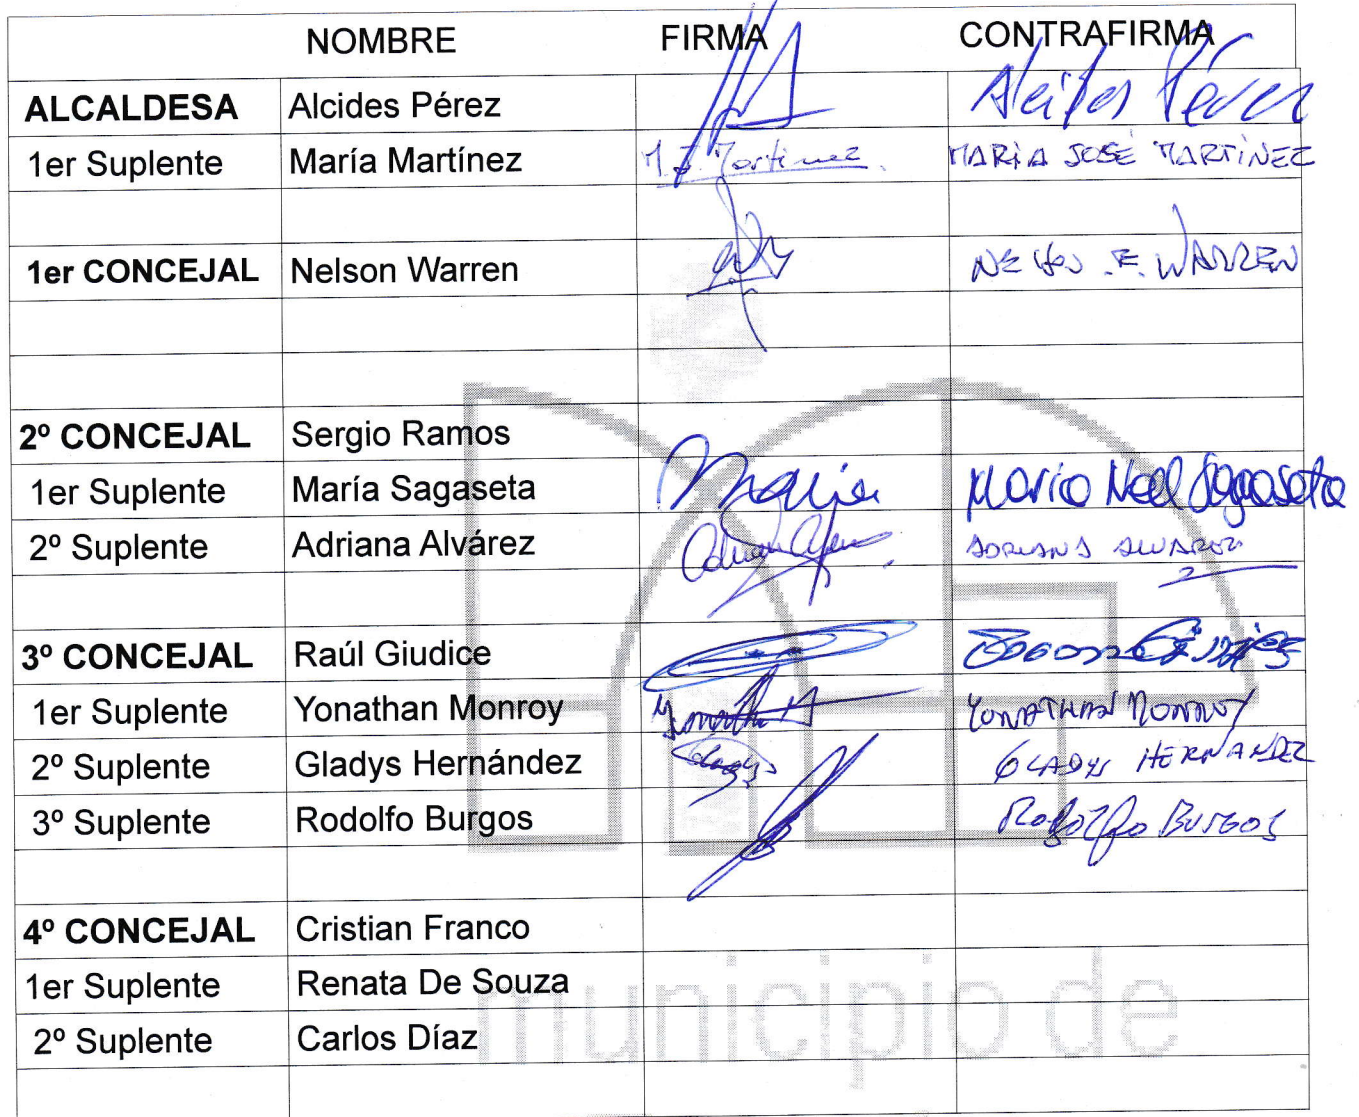 NOMBRE FIRMA CONTRAFIRMA
ALCALDESA Alcides Pérez Alcides Pérez
1er Suplente María Martínez M. J. Martinez. MARIA JOSÉ MARTINEZ
1er CONCEJAL Nelson Warren NELSON E. WARREN
2º CONCEJAL Sergio Ramos
1er Suplente María Sagaseta María María Noel Sagaseta
2º Suplente Adriana Alvárez ADRIANA ALVAREZ
3º CONCEJAL Raúl Giudice
1er Suplente Yonathan Monroy YONATHAN MONROY
2º Suplente Gladys Hernández Gladys GLADYS HERNANDEZ
3º Suplente Rodolfo Burgos Rodolfo BURGOS
4º CONCEJAL Cristian Franco
1er Suplente Renata De Souza
2º Suplente Carlos Díaz
municipio de